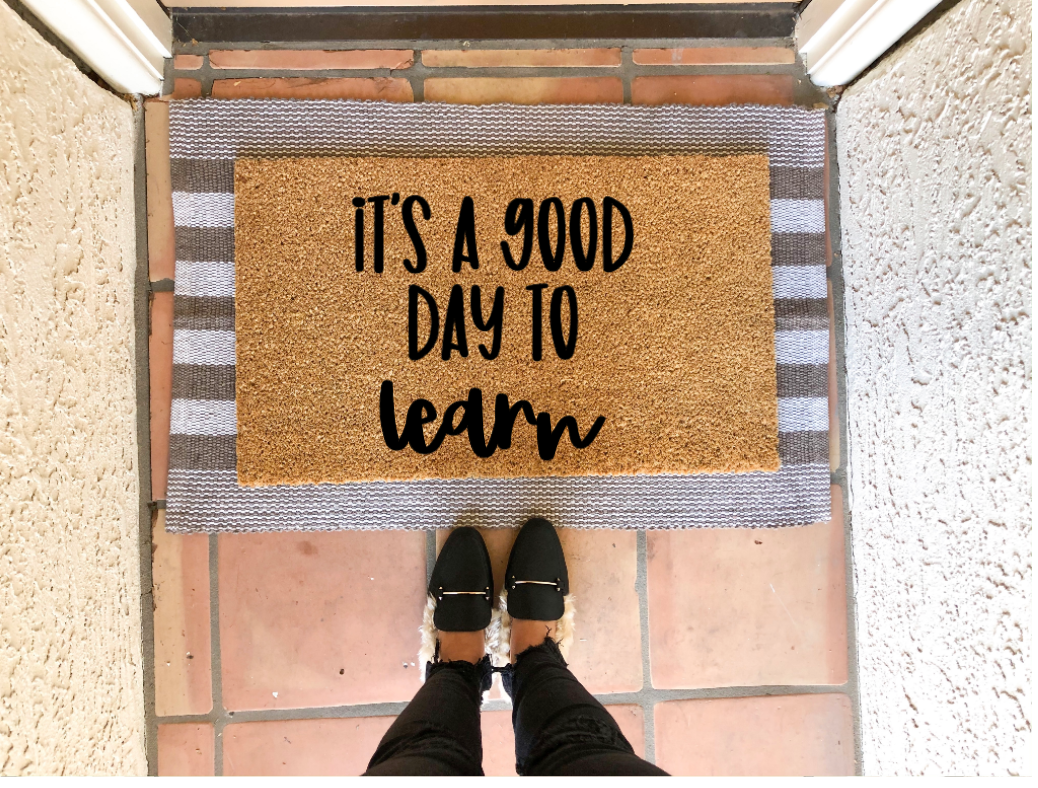 iT'S A gOOD
DAY TO
learn